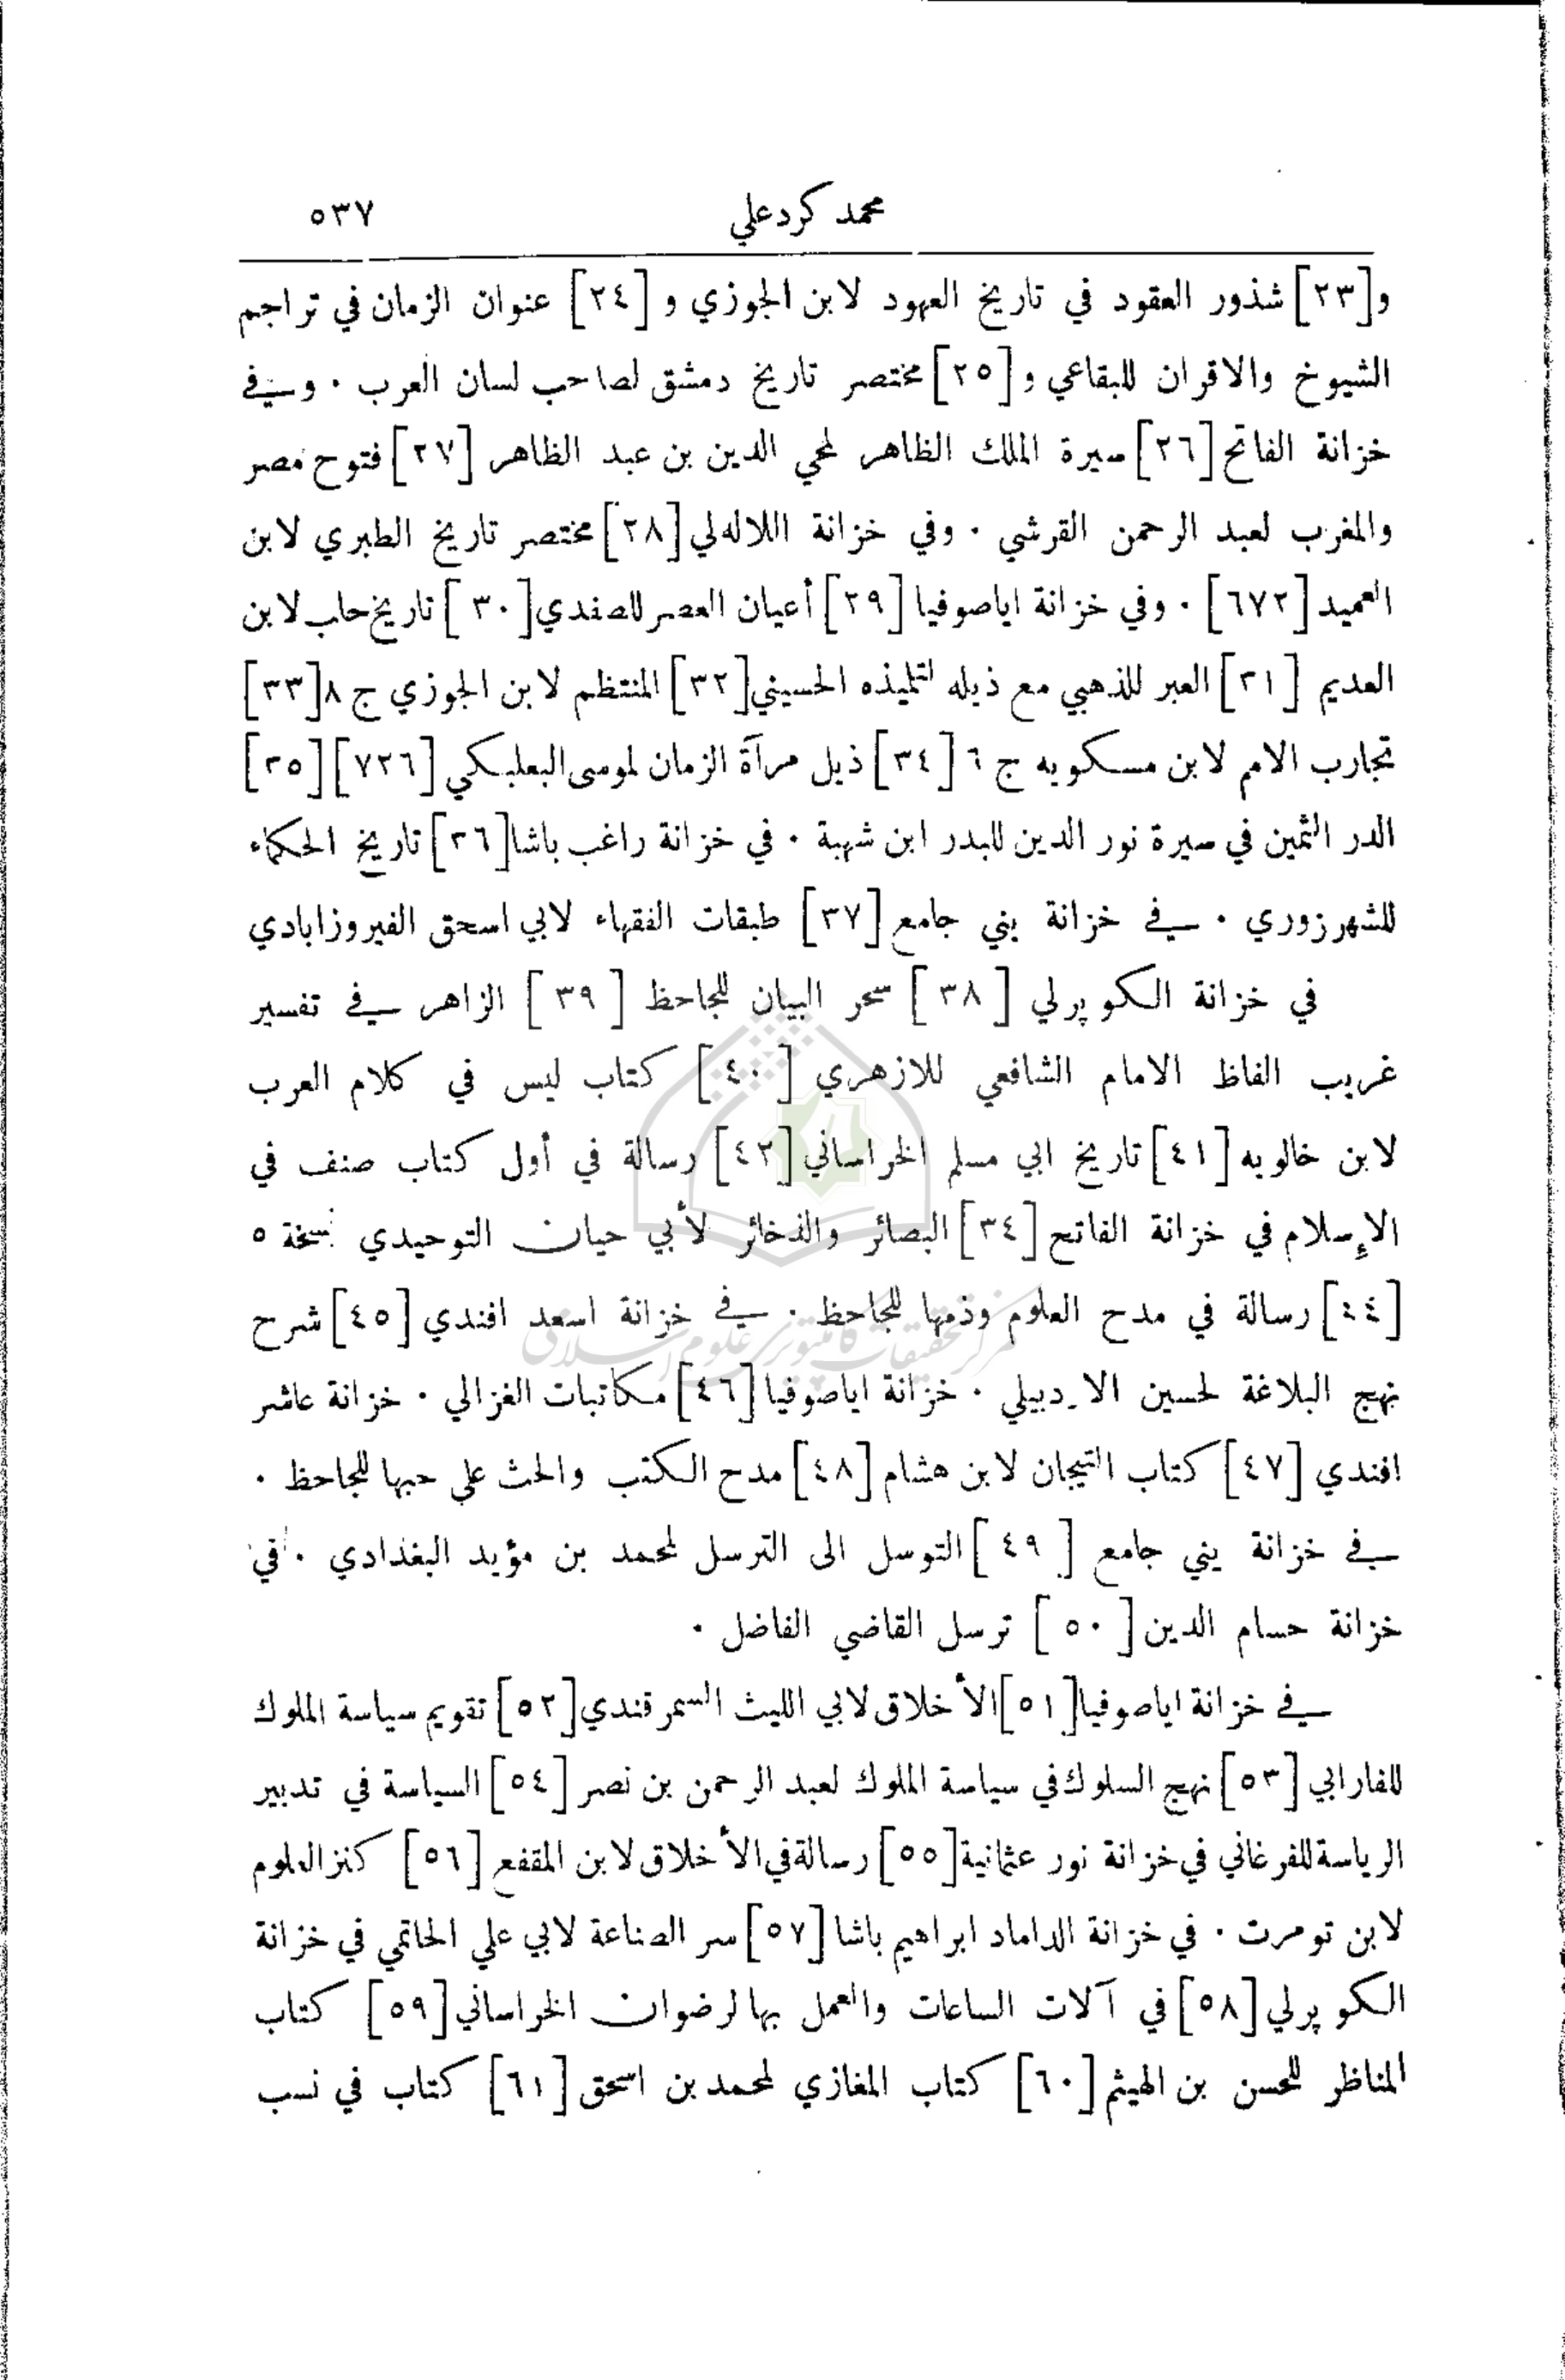 محمد كرد علي ٥٣٧
و[٢٣] شذور العقود في تاريخ العهود لابن الجوزي و [٢٤] عنوان الزمان في تراجم
الشيوخ والاقران للبقاعي و [٢٥] مختصر تاريخ دمشق لصاحب لسان العرب . وفي
خزانة الفاتح [٢٦] سيرة الملك الظاهر لمحي الدين بن عبد الظاهر [٢٧] فتوح مصر
والمغرب لعبد الرحمن القرشي . وفي خزانة اللاله‌لي [٢٨] مختصر تاريخ الطبري لابن
العميد [٦٧٢] . وفي خزانة اياصوفيا [٢٩] أعيان العصر للصفدي [٣٠] تاريخ حلب لابن
العديم [٣١] العبر للذهبي مع ذيله لتلميذه الحسيني [٣٢] المنتظم لابن الجوزي ج ٨ [٣٣]
تجارب الامم لابن مسكويه ج ٦ [٣٤] ذيل مرآة الزمان لموسى البعلبكي [٧٢٦] [٣٥]
الدر الثمين في سيرة نور الدين للبدر ابن شهبة . في خزانة راغب باشا [٣٦] تاريخ الحكماء
للشهرزوري . في خزانة يني جامع [٣٧] طبقات الفقهاء لابي اسحق الفيروزابادي
في خزانة الكوپرلي [٣٨] سحر البيان للجاحظ [٣٩] الزاهر في تفسير
غريب الفاظ الامام الشافعي للازهري [٤٠] كتاب ليس في كلام العرب
لابن خالويه [٤١] تاريخ ابي مسلم الخراساني [٤٢] رسالة في أول كتاب صنف في
الإسلام في خزانة الفاتح [٣٤] البصائر والذخائر لأبي حيان التوحيدي نسخة ٥
[٤٤] رسالة في مدح العلوم وذمها للجاحظ . في خزانة اسعد افندي [٤٥] شرح
نهج البلاغة لحسين الاردبيلي . خزانة اياصوفيا [٤٦] مكاتبات الغزالي . خزانة عاشر
افندي [٤٧] كتاب التيجان لابن هشام [٤٨] مدح الكتب والحث على حبها للجاحظ .
في خزانة يني جامع [٤٩] التوسل الى الترسل لمحمد بن مؤيد البغدادي . في
خزانة حسام الدين [٥٠] ترسل القاضي الفاضل .
في خزانة اياصوفيا [٥١] الأخلاق لابي الليث السمرقندي [٥٢] تقويم سياسة الملوك
للفارابي [٥٣] نهج السلوك في سياسة الملوك لعبد الرحمن بن نصر [٥٤] السياسة في تدبير
الرياسة للفرغاني في خزانة نور عثمانية [٥٥] رسالة في الأخلاق لابن المقفع [٥٦] كنز العلوم
لابن تومرت . في خزانة الداماد ابراهيم باشا [٥٧] سر الصناعة لابي علي الحاتمي في خزانة
الكوپرلي [٥٨] في آلات الساعات والعمل بها لرضوان الخراساني [٥٩] كتاب
المناظر للحسن بن الهيثم [٦٠] كتاب المغازي لمحمد بن اسحق [٦١] كتاب في نسب
مركز تحقيقات كامپيوتري علوم اسلامي